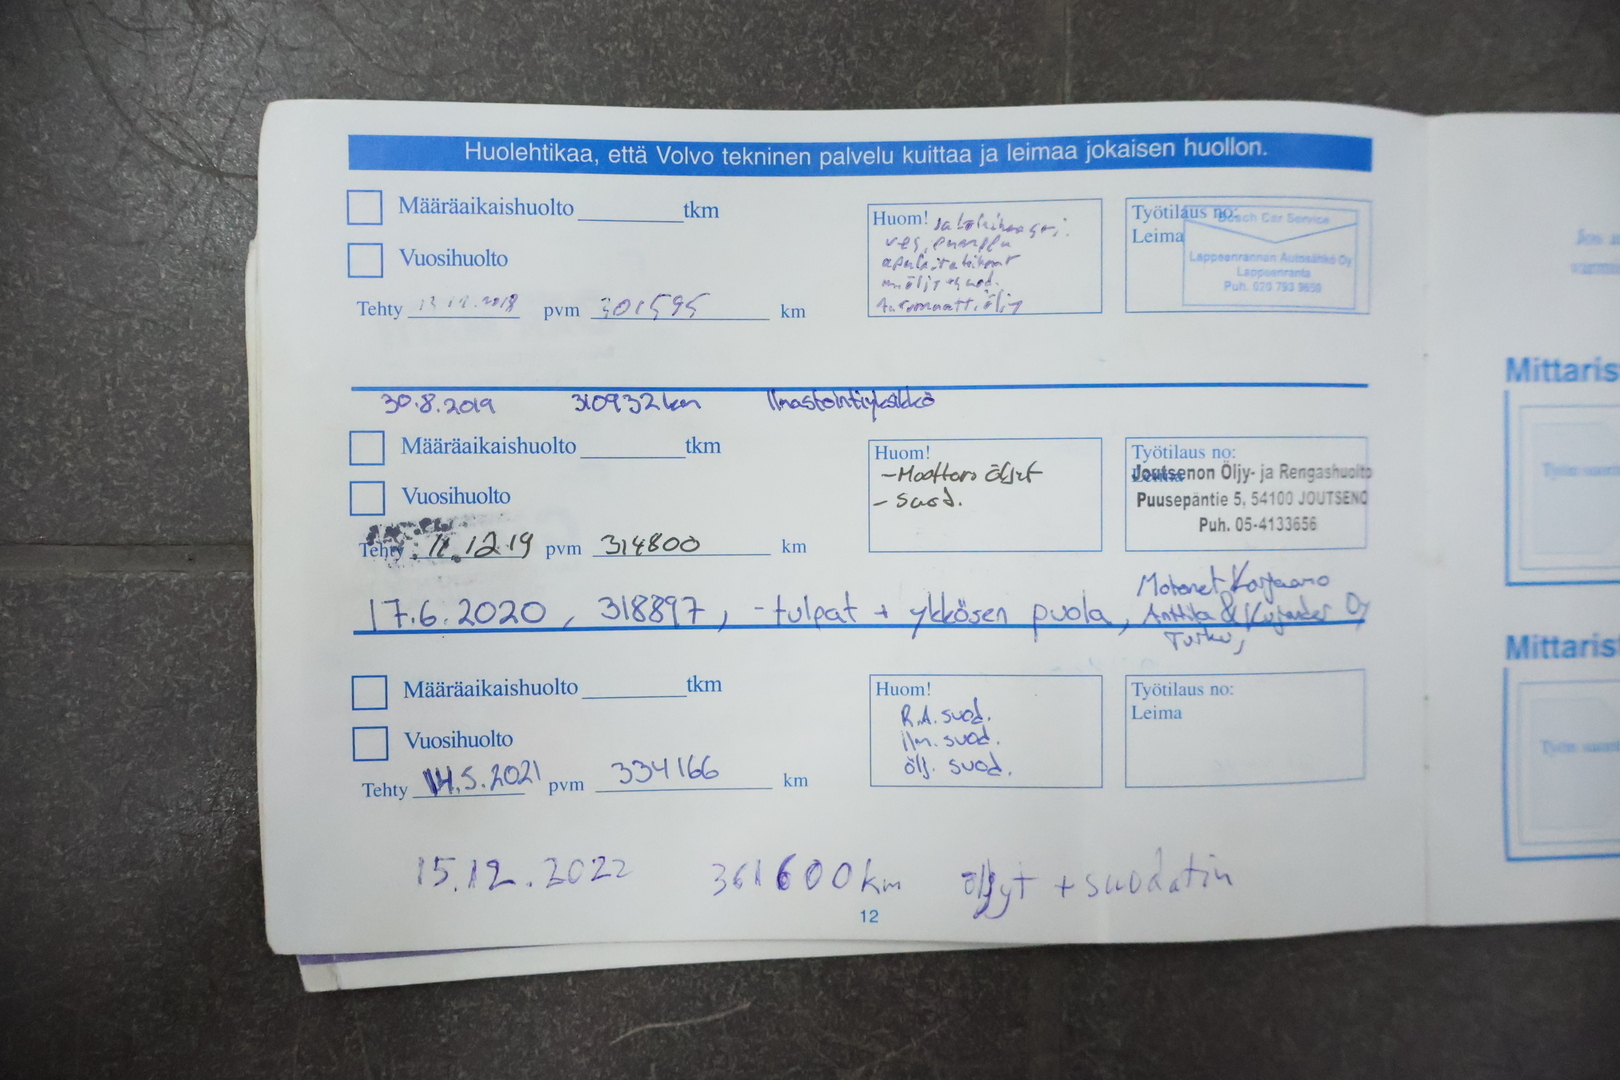 Huolehtikaa, että Volvo tekninen palvelu kuittaa ja leimaa jokaisen huollon.
Määräaikaishuolto tkm
Vuosihuolto
Tehty 2018 pvm 301595 km
Huom! jakohihnasarja:
ves.pumppu
apulaitehihnat
m.öljy + suod.
Automaattiöljy
Työtilaus no:
Leima
Bosch Car Service
Lappeenrannan Autosähkö Oy
Lappeenranta
Puh. 020 793 9650
30.8.2019 310932 km Ilmastointiyksikkö
Määräaikaishuolto tkm
Vuosihuolto
Tehty 11.12.19 pvm 314800 km
Huom!
- Moottori öljyt
- suod.
Työtilaus no:
Leima
Joutsenon Öljy- ja Rengashuolto
Puusepäntie 5, 54100 JOUTSENO
Puh. 05-4133656
17.6.2020, 318897, - tulpat + ykkösen puola, Motonet Korjaamo
Anttila & Kujander Oy
Turku,
Määräaikaishuolto tkm
Vuosihuolto
Tehty 14.5.2021 pvm 334166 km
Huom!
R.A. suod.
ilm. suod.
ölj. suod.
Työtilaus no:
Leima
15.12.2022 361600 km öljyt + suodatin
12
Mittaris
Mittaris